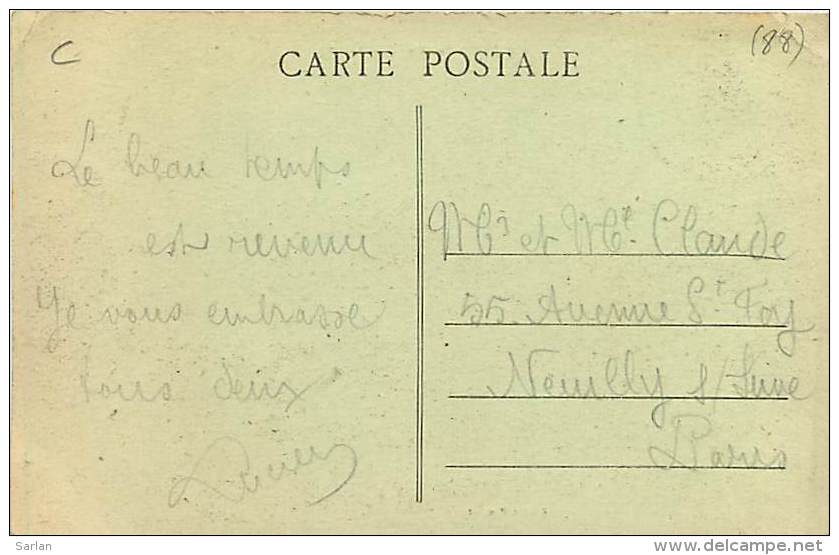 C
(88)
CARTE POSTALE
Le beau temps
est revenu
Je vous embrasse
tous deux
Mr et Me. Claude
55 Avenue St Foy
Neuilly s/Seine
Paris
Sarlan
delcampe.net